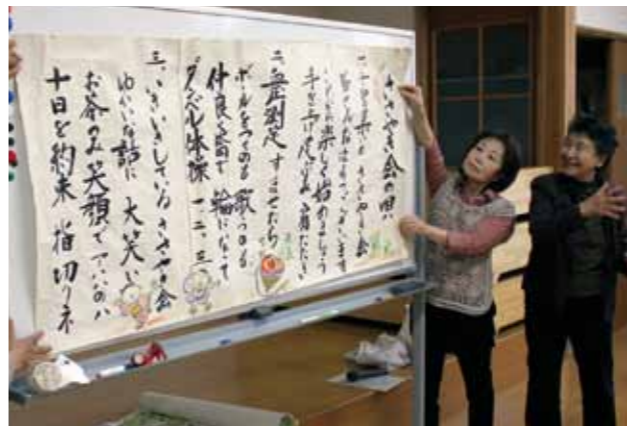 ささやき会の唄
一、十日が来た ささやき会
皆さんおはようございます
いつも楽しく始めましょう
手を上げ足ぶみ 肩たたき
二、血圧測定 すませたら
ボールをつくのも 歌つのも
仲良し笛で 輪になって
ダンベル体操 一、二、三
三、いきいきしている ささやき会
ゆかいな話に 大笑い
お茶のみ 笑顔で アハハのハ
十日を約束 指切りネ